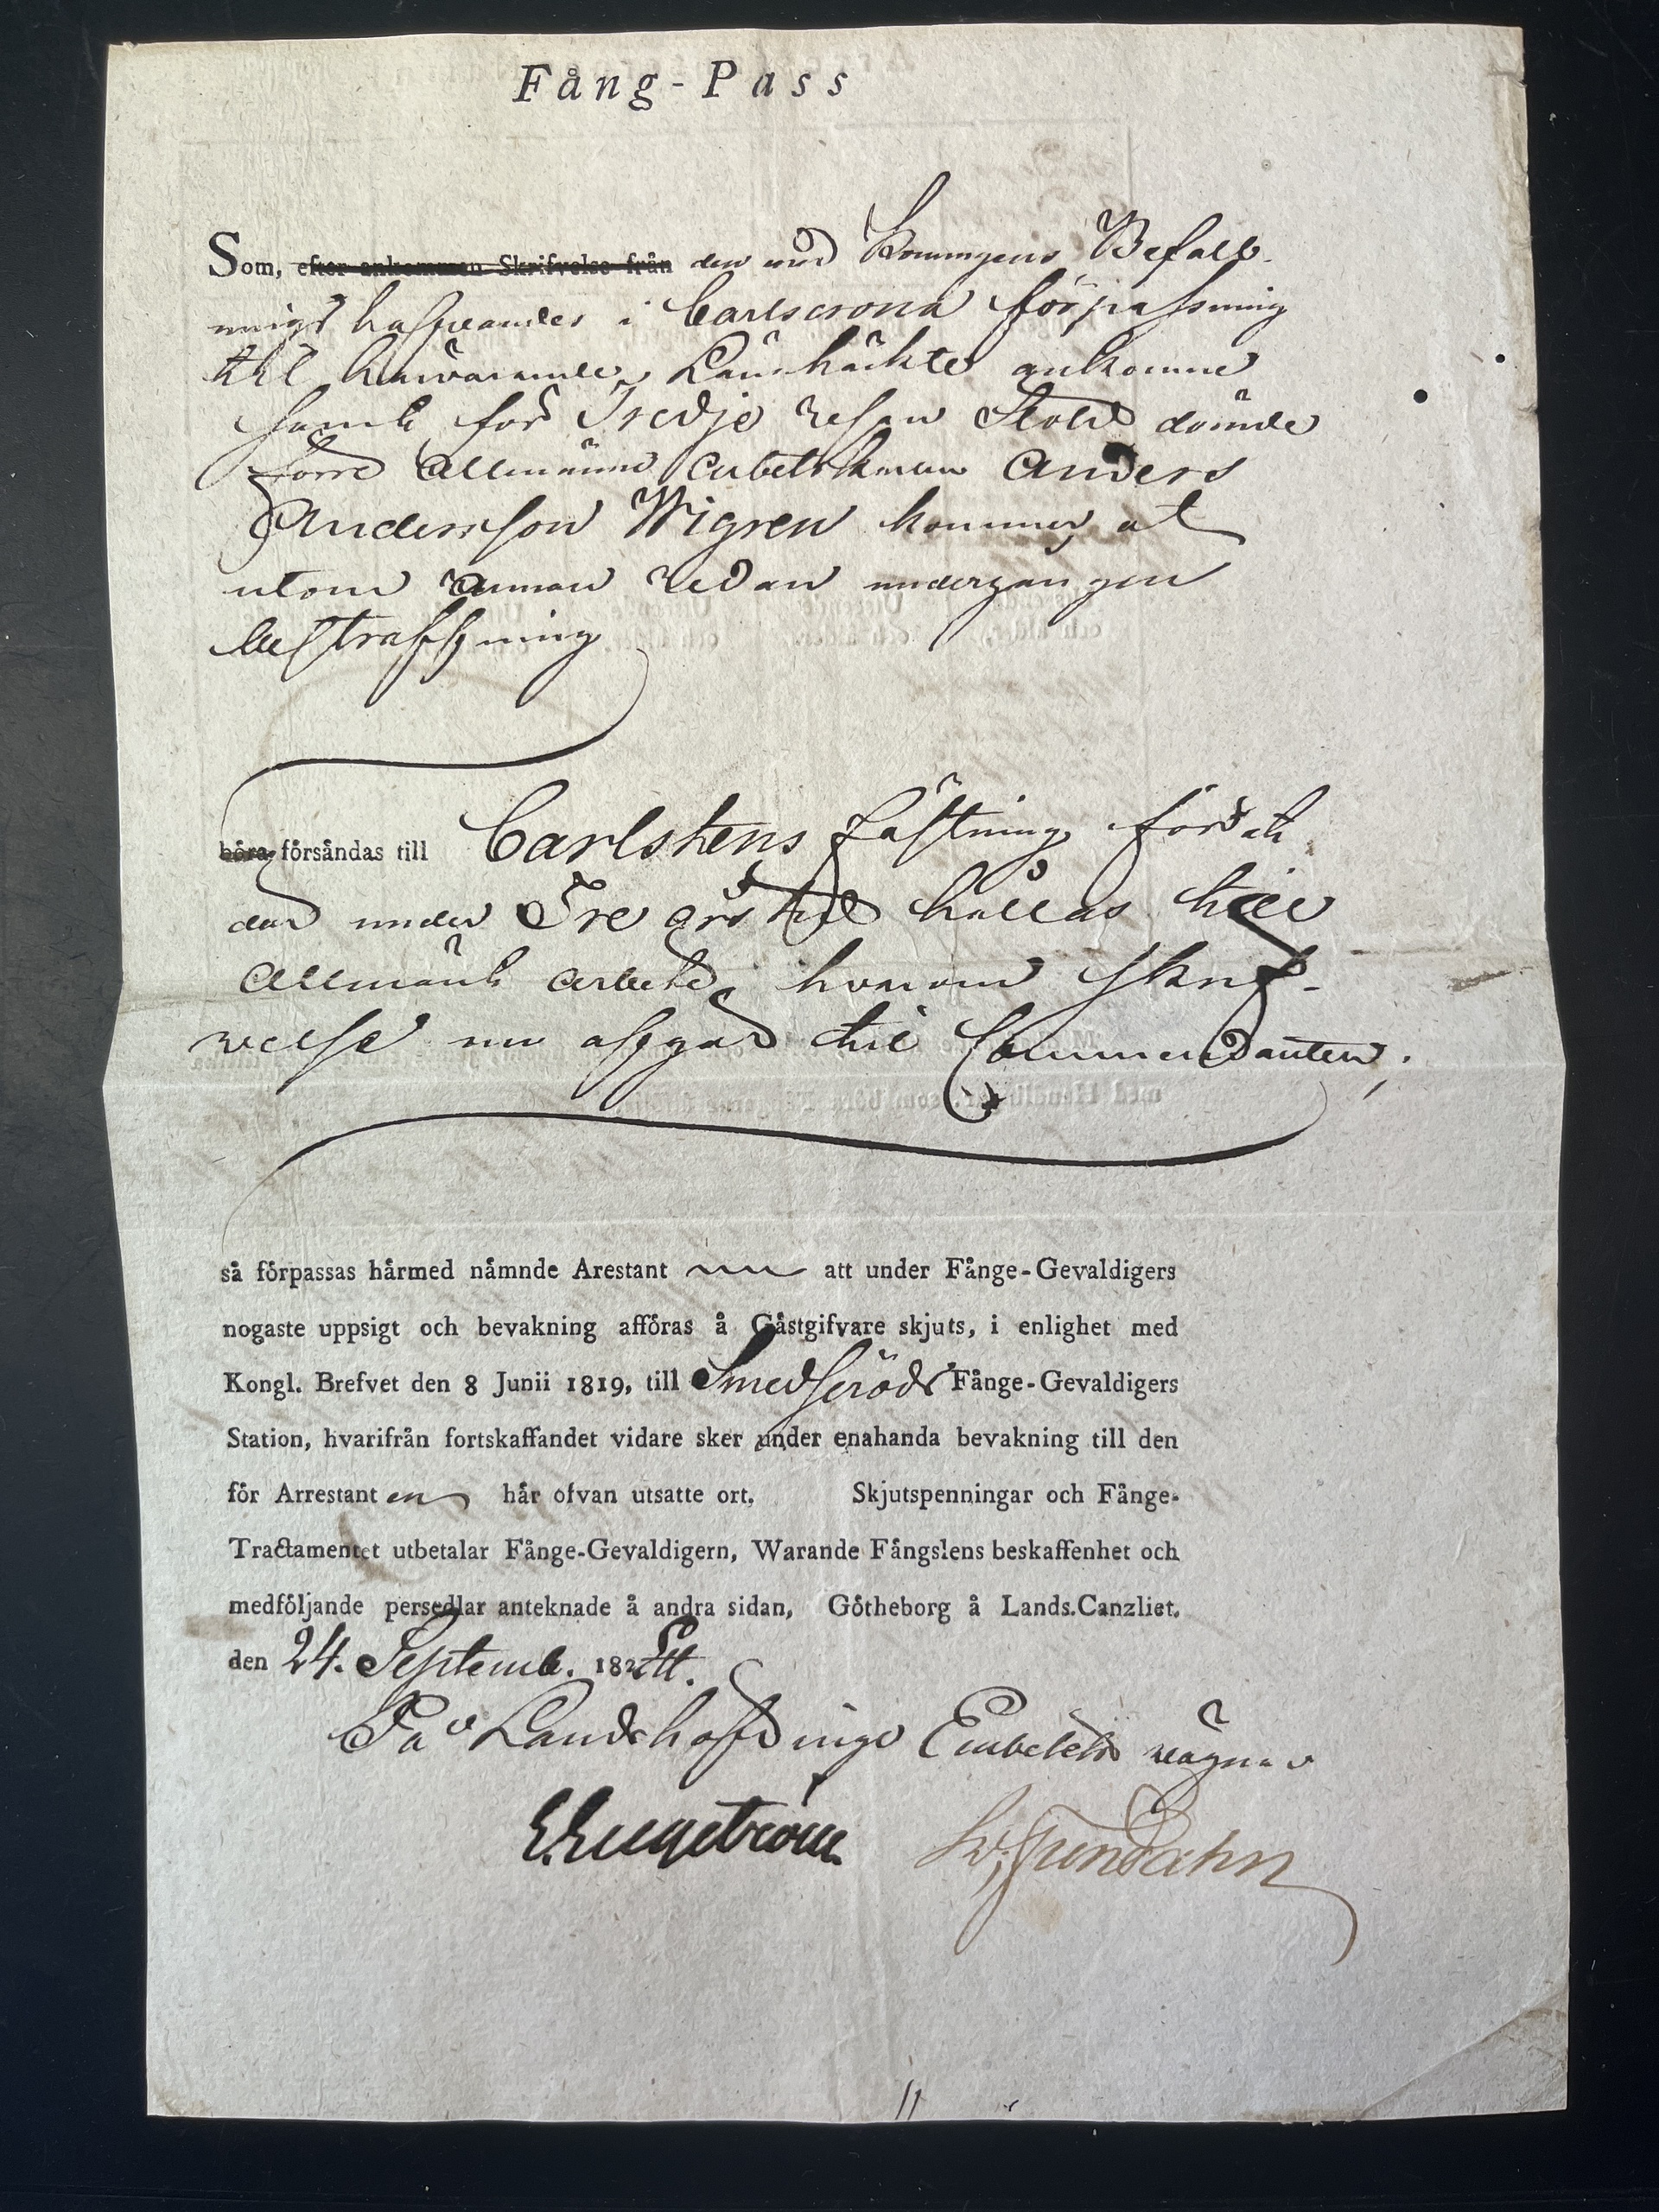 Fång-Pass
Som, efter ankommen Skrifvelse från den med Konungens Befall-
nings hafvandes i Carlscrona förpassning
till härvarande Länshäkte ankomne
samt för Tredje resan Stöld dömde
förre Allmänne Arbetskarlen Anders
Andersson Wigren kommer at
utom annan redan undergången
bestraffning
böra försändas till Carlstens fästning för att
der under Tre års tid hållas till
Allmänt arbete, hvarom skrif-
velse nu afgår till Commendanten;
så förpassas härmed nämnde Arestant att under Fånge-Gevaldigers
nogaste uppsigt och bevakning afföras å Gästgifvare skjuts, i enlighet med
Kongl. Brefvet den 8 Junii 1819, till Smedseröds Fånge-Gevaldigers
Station, hvarifrån fortskaffandet vidare sker under enahanda bevakning till den
för Arrestant en här ofvan utsatte ort. Skjutspenningar och Fånge-
Tractamentet utbetalar Fånge-Gevaldigern, Warande Fångslens beskaffenhet och
medföljande persedlar anteknade å andra sidan, Götheborg å Lands.Canzliet.
den 24. Septemb. 182 Ett.
På Landshöfdinge Embetets vägnar